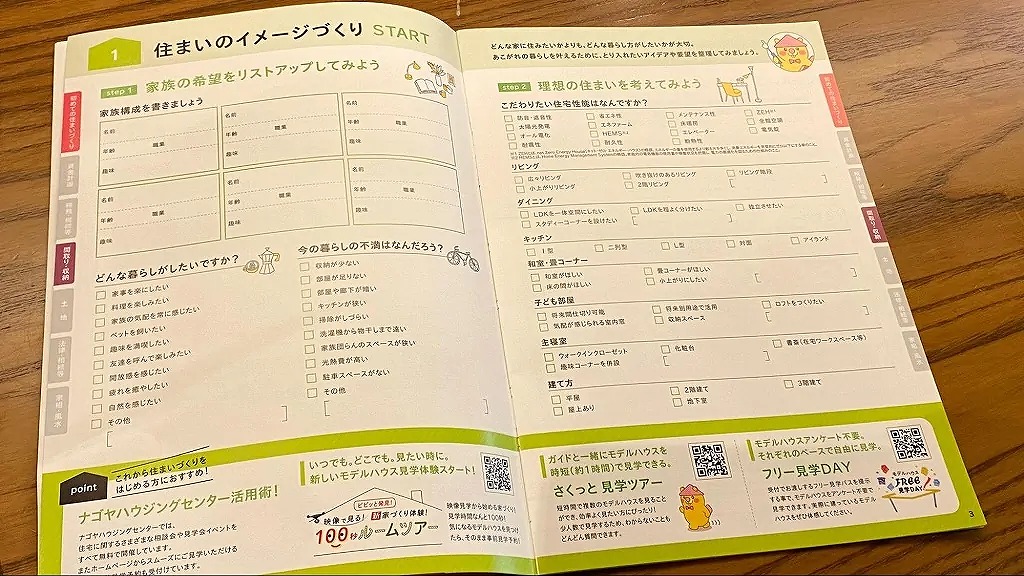 1
住まいのイメージづくり START
step 1
家族の希望をリストアップしてみよう
家族構成を書きましょう
名前
年齢 職業
趣味
名前
年齢 職業
趣味
名前
年齢 職業
趣味
名前
年齢 職業
趣味
名前
年齢 職業
趣味
名前
年齢 職業
趣味
どんな暮らしがしたいですか?
家事を楽にしたい
料理を楽しみたい
家族の気配を常に感じたい
ペットを飼いたい
趣味を満喫したい
友達を呼んで楽しみたい
開放感を感じたい
疲れを癒やしたい
自然を感じたい
その他
今の暮らしの不満はなんだろう?
収納が少ない
部屋が足りない
部屋や廊下が暗い
キッチンが狭い
掃除がしづらい
洗濯機から物干しまで遠い
家族団らんのスペースが狭い
光熱費が高い
駐車スペースがない
その他
初めての住まいづくり
資金計画
間取り・収納
土地
法律・相続等
家相・風水
point
これから住まいづくりを
はじめる方におすすめ!
ナゴヤハウジングセンター活用術!
ナゴヤハウジングセンターでは、
住宅に関するさまざまな相談会や見学会イベントを
すべて無料で開催しています。
またホームページからスムーズにご見学いただける
いつでも。どこでも。見たい時に。
新しいモデルハウス見学体験スタート!
ビビッと発見!
映像で見る! 新家づくり体験!
100秒ルームツアー
映像見学から始める家づくり!
見学時間なんと100秒!
気になるモデルハウスを見つけ
たら、そのまま事前見学予約!
どんな家に住みたいかよりも、どんな暮らし方がしたいかが大切。
あこがれの暮らしを叶えるために、とり入れたいアイデアや要望を整理してみましょう。
step 2
理想の住まいを考えてみよう
こだわりたい住宅性能はなんですか?
防音・遮音性
省エネ性
メンテナンス性
ZEH※1
太陽光発電
エネファーム
床暖房
全館空調
オール電化
HEMS※2
エレベーター
電気錠
耐震性
耐久性
断熱性
リビング
広々リビング
吹き抜けのあるリビング
リビング階段
小上がりリビング
2階リビング
ダイニング
LDKを一体空間にしたい
LDKを程よく分けたい
独立させたい
スタディーコーナーを設けたい
キッチン
I型
二列型
L型
対面
アイランド
和室・畳コーナー
和室がほしい
畳コーナーがほしい
床の間がほしい
小上がりにしたい
子ども部屋
将来間仕切り可能
将来別用途で活用
ロフトをつくりたい
気配が感じられる室内窓
収納スペース
主寝室
ウォークインクローゼット
化粧台
書斎(在宅ワークスペース等)
趣味コーナーを併設
建て方
平屋
2階建て
3階建て
屋上あり
地下室
初めての住まいづくり
間取り・収納
ガイドと一緒にモデルハウスを
時短(約1時間)で見学できる。
さくっと 見学ツアー
短時間で複数のモデルハウスを見ること
ができ、効率よく見たい方にぴったり!
少人数で見学するため、わからないことも
どんどん質問できます。
モデルハウスアンケート不要。
それぞれのペースで自由に見学。
フリー見学DAY
受付でお渡しするフリー見学パスを提示
する事で、モデルハウスアンケート不要で
見学できます。実際に建っているモデル
ハウスをぜひ体感してください。
モデルハウス
FREE
見学DAY
3